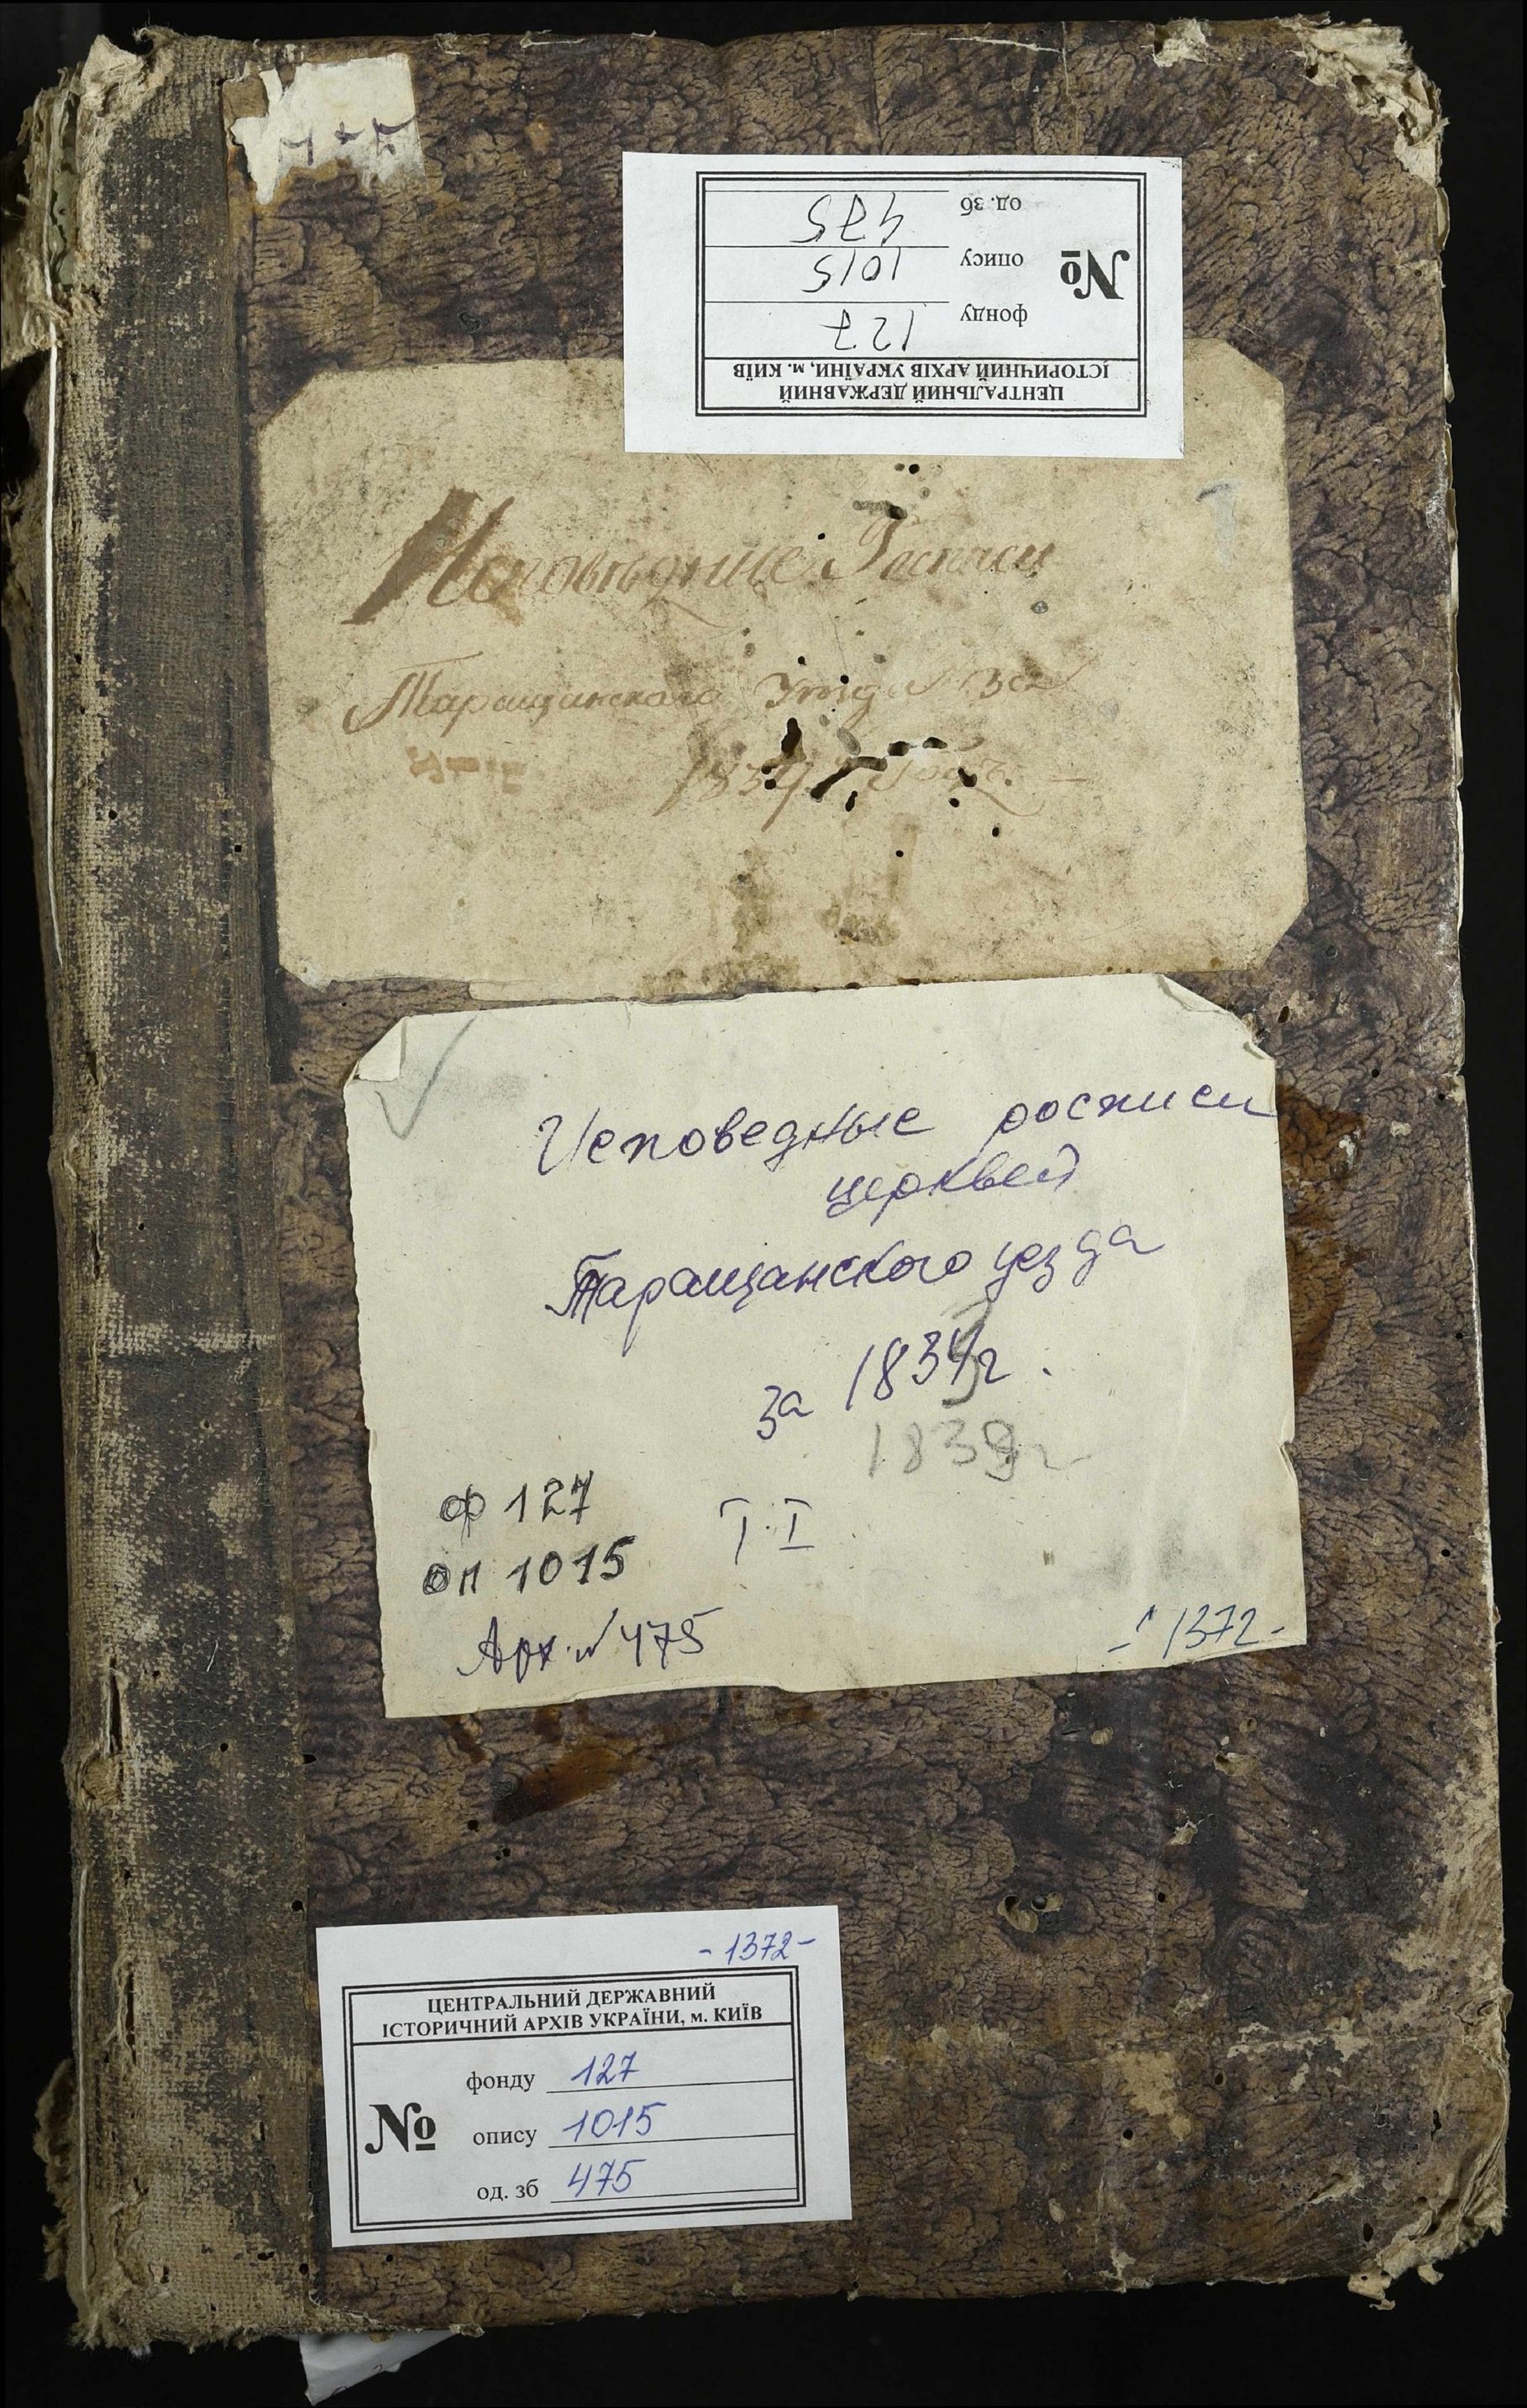 од. зб 475
опису 1015
№
фонду 127
ЦЕНТРАЛЬНИЙ ДЕРЖАВНИЙ
ІСТОРИЧНИЙ АРХІВ УКРАЇНИ, м. КИЇВ
Исповѣдние Росписи
Таращанского Уезда За
Исповедные росписи
церквей
Таращанского уезда
за 1834г.
1839г
ф 127
оп 1015
Т. I
Арх. № 475
1372-
-1372-
ЦЕНТРАЛЬНИЙ ДЕРЖАВНИЙ
ІСТОРИЧНИЙ АРХІВ УКРАЇНИ, м. КИЇВ
фонду 127
№
опису 1015
од. зб 475